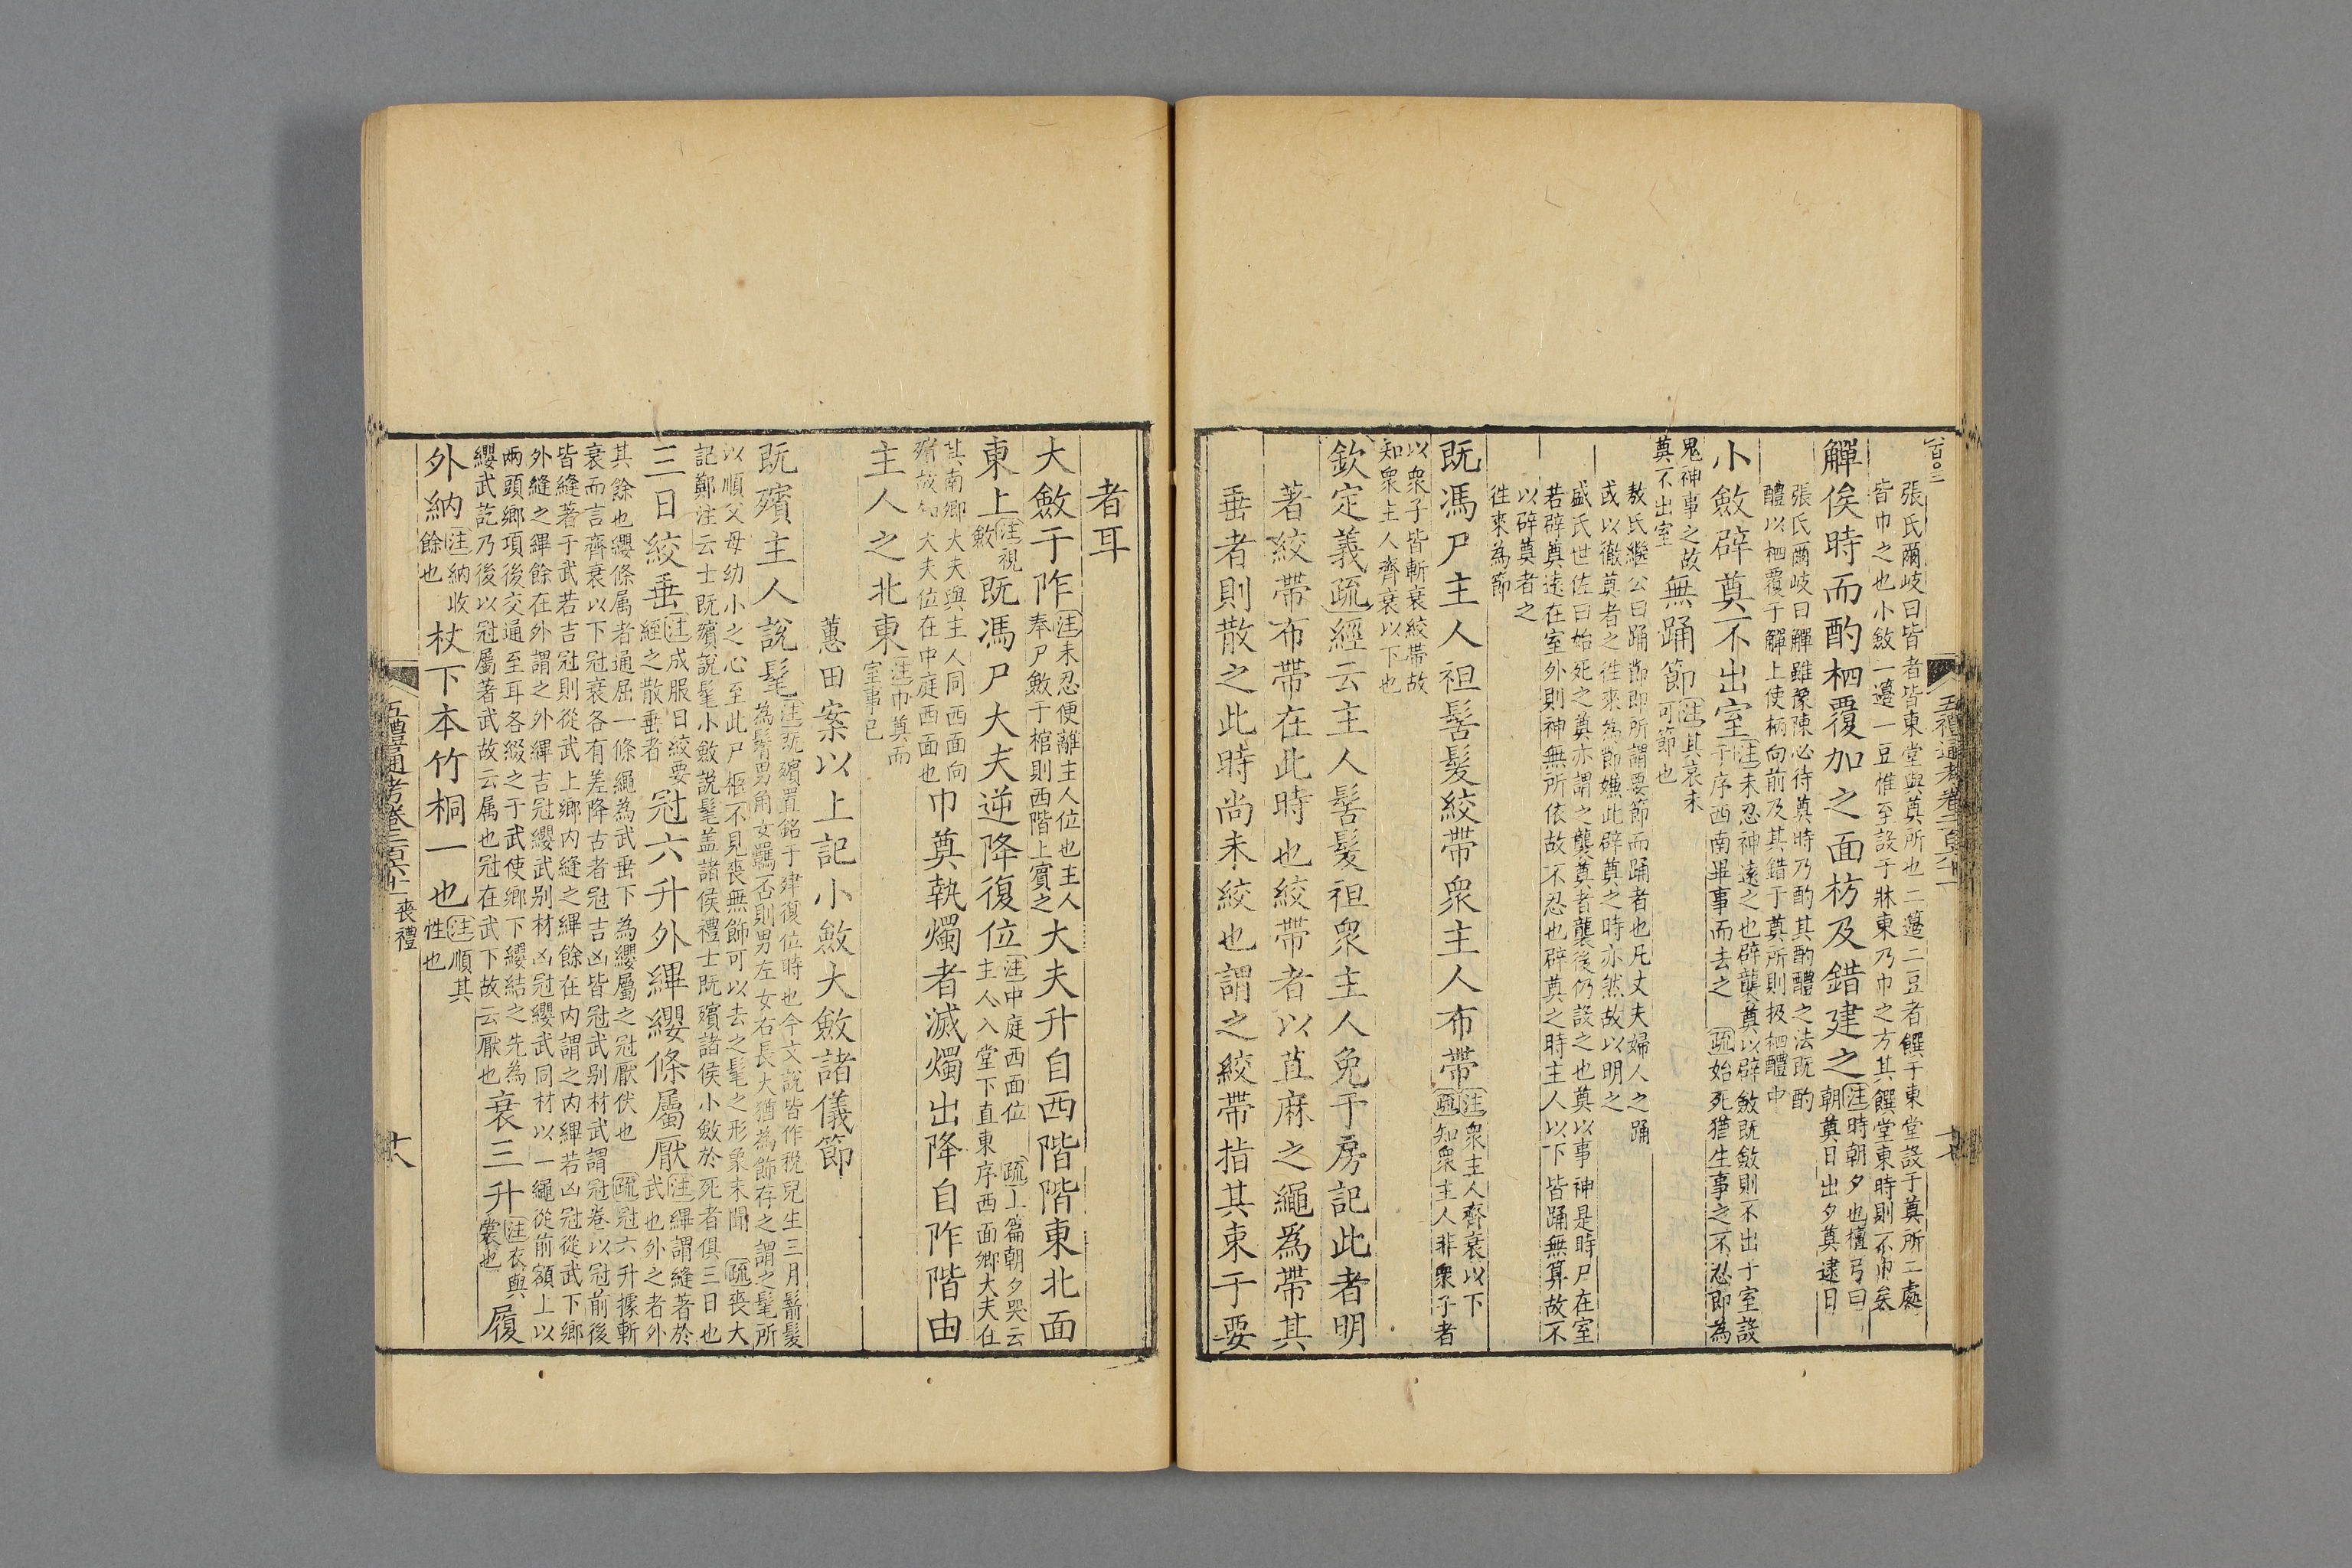 張氏爾岐曰皆者皆東堂與奠所也二籩二豆者饌于東堂設于奠所二處
皆巾之也小斂一籩一豆惟至設于牀東乃巾之方其饌堂東時則不巾矣
觶俟時而酌柶覆加之面枋及錯建之注時朝夕也檀弓曰朝奠日出夕奠逮日
張氏爾岐曰觶雖豫陳必待奠時乃酌其酌醴之法既酌
醴以柶覆于觶上使柄向前及其錯于奠所則扱柶醴中
小斂辟奠不出室注未忍神遠之也辟襲奠以辟斂既斂則不出于室設于序西南畢事而去之 疏始死猶生事之不忍即為
鬼神事之故奠不出室無踊節注其哀未可節也
敖氏繼公曰踊節即所謂要節而踊者也凡丈夫婦人之踊
或以徹奠者之徃來為節嫌此辟奠之時亦然故以明之
盛氏世佐曰始死之奠亦謂之襲奠者襲後仍設之也奠以事神是時尸在室
若辟奠遠在室外則神無所依故不忍也辟奠之時主人以下皆踊無算故不
以辟奠者之
徃來為節
既馮尸主人袒髻髮絞帶衆主人布帶注衆主人齊衰以下疏知衆主人非衆子者
以衆子皆斬衰絞帶故知衆主人齊衰以下也
欽定義疏經云主人髻髮袒衆主人免于房記此者明
著絞帶布帶在此時也絞帶者以苴麻之繩爲帶其
垂者則散之此時尚未絞也謂之絞帶指其束于要
者耳
大斂于阼注未忍便離主人位也主人奉尸斂于棺則西階上賓之大夫升自西階階東北面
東上注視斂既馮尸大夫逆降復位注中庭西面位 疏上篇朝夕哭云主人入堂下直東序西面鄉大夫在
其南鄉大夫與主人同西面向殯故知大夫位在中庭西面也巾奠執燭者滅燭出降自阼階由
主人之北東注巾奠而室事已
蕙田案以上記小斂大斂諸儀節
既殯主人說髦注既殯置銘于肂復位時也今文說皆作稅兒生三月鬋髮為鬌男角女羈否則男左女右長大猶為飾存之謂之髦所
以順父母幼小之心至此尸柩不見喪無飾可以去之髦之形象未聞 疏喪大
記鄭注云士既殯說髦小斂說髦盖諸侯禮士既殯諸侯小斂於死者俱三日也
三日絞垂注成服日絞要絰之散垂者冠六升外縪纓條屬厭注縪謂縫著於武也外之者外
其餘也纓條属者通屈一條繩為武垂下為纓屬之冠厭伏也 疏冠六升據斬
衰而言齊衰以下冠衰各有差降古者冠吉凶皆冠武别材武謂冠卷以冠前後
皆縫著于武若吉冠則從武上鄉内縫之縪餘在内謂之内縪若凶冠從武下鄉
外縫之縪餘在外謂之外縪吉冠纓武别材凶冠纓武同材以一繩從前額上以
兩頭鄉項後交通至耳各綴之于武使鄉下纓結之先為
纓武訖乃後以冠屬著武故云属也冠在武下故云厭也衰三升注衣與裳也履
外納注納收餘也杖下本竹桐一也注順其性也
五禮通考卷二百六十一
五禮通考卷二百六十一 喪禮